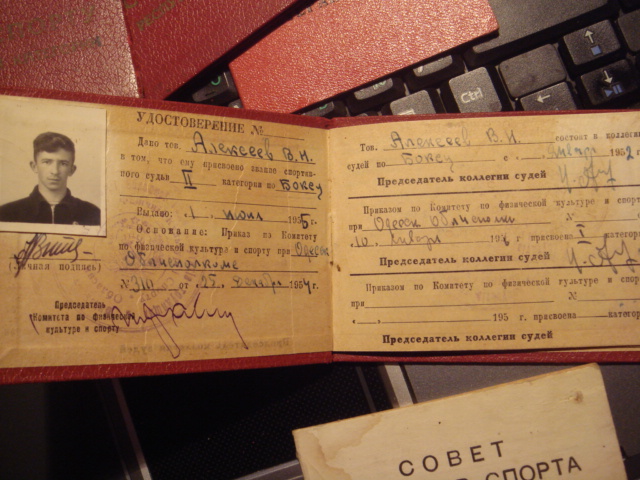 УДОСТОВЕРЕНИЕ №
Дано тов. Алексеев В.И.
в том, что ему присвоено звание спортив-
ного судьи II категории по Боксу
Выдано: 1 июня 1955 г.
Основание: Приказ по Комитету
по физической культуре и спорту при
Облисполкоме
№ 310 от 25 декабря 1954 г.
(Личная подпись)
Председатель
Комитета по физической
культуре и спорту
Тов. Алексеев В.И. состоит в коллегии
судей по Боксу с января 1952 г
Председатель коллегии судей
Приказом по Комитету по физической культуре и спорту
при Одесск Облисполк №
10 января 195 г. присвоена I категория
Председатель коллегии судей
Приказом по Комитету по физической культуре и спорту
при №
" " 195 г. присвоена категория
Председатель коллегии судей
СОВЕТ
СПОРТА
Ctrl